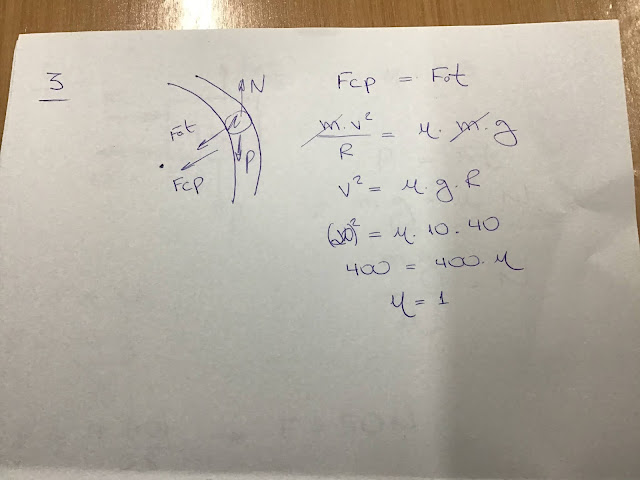 3
N
Fat
P
Fcp
Fcp = Fat
m.v²/R = μ.m.g
v² = μ.g.R
(20)² = μ.10.40
400 = 400.μ
μ = 1